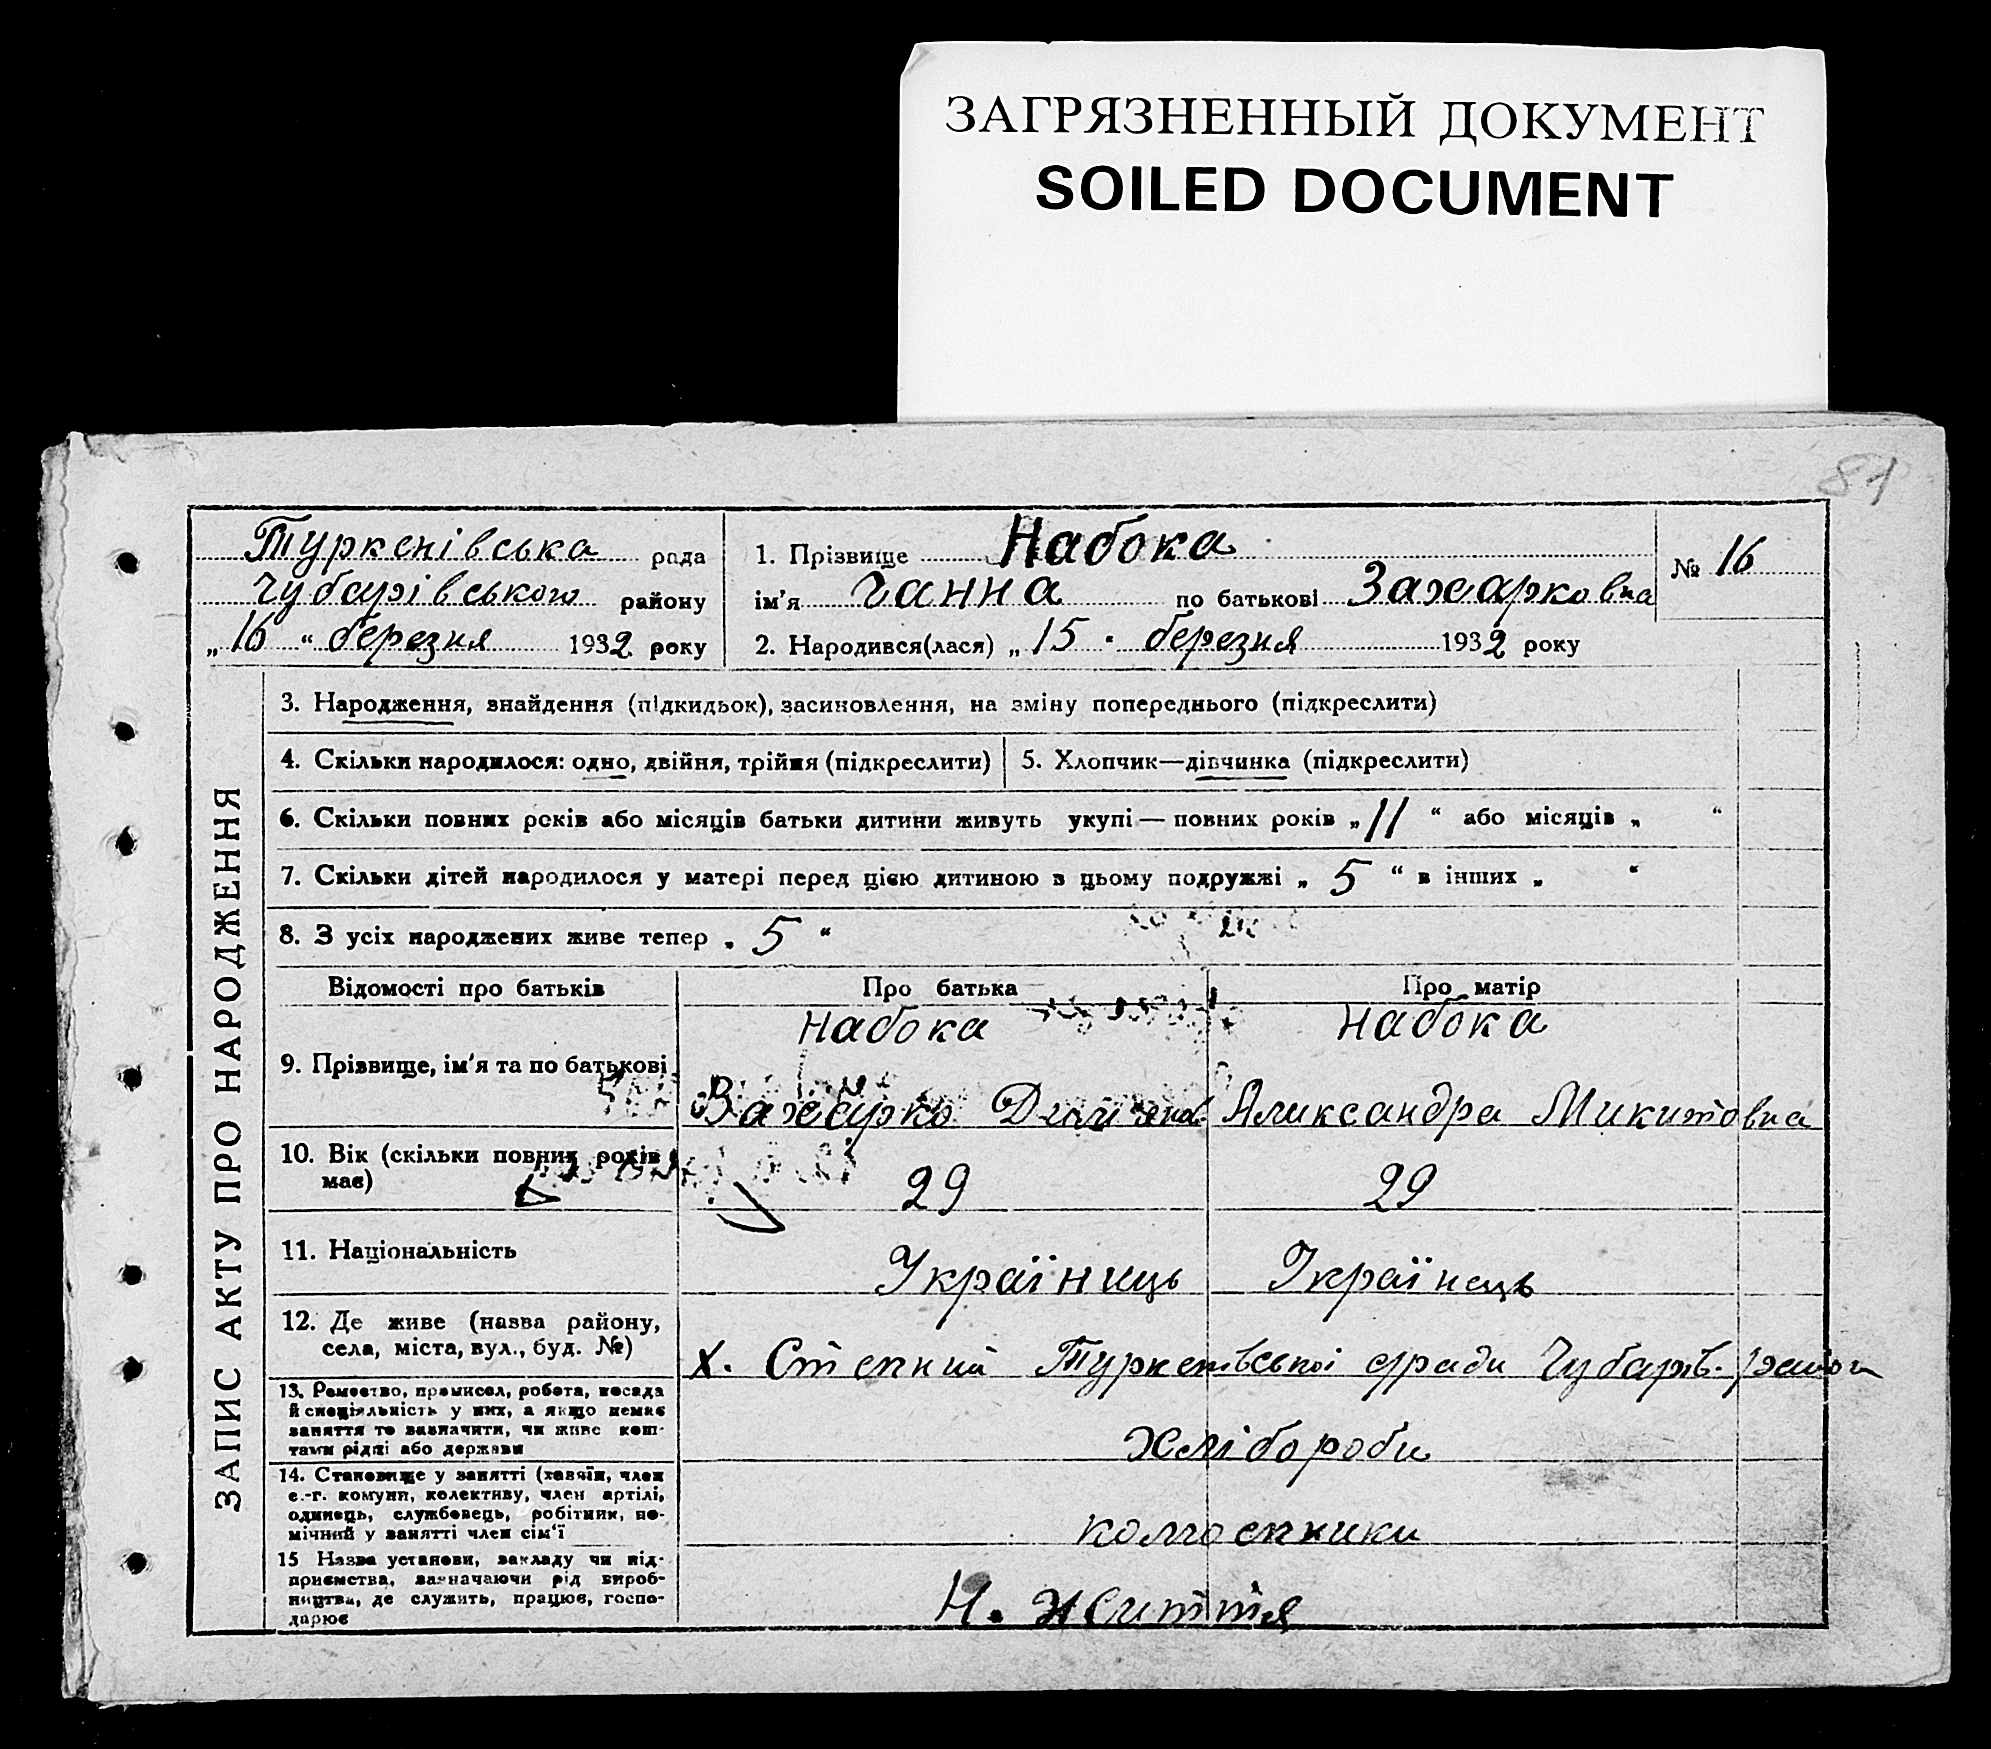 ЗАГРЯЗНЕННЫЙ ДОКУМЕНТ
SOILED DOCUMENT
81
Туркенівська рада
Чубарівського району
„16“ березня 1932 року
1. Прізвище Набока
ім'я Ганна по батькові Захарковна
2. Народився(лася) „15 " березня 1932 року
№ 16
ЗАПИС АКТУ ПРО НАРОДЖЕННЯ
3. Народження, знайдення (підкидьок), засиновлення, на зміну попереднього (підкреслити)
4. Скільки народилося: одно, двійня, трійня (підкреслити)
5. Хлопчик—дівчинка (підкреслити)
6. Скільки повних років або місяців батьки дитини живуть укупі — повних років „11“ або місяців „ “
7. Скільки дітей народилося у матері перед цією дитиною в цьому подружжі „5“ в інших „ “
8. З усіх народжених живе тепер „5“
Відомості про батьків Про батька Про матір
9. Прізвище, ім'я та по батькові
Набока
Захарко
Набока
Александра Микитовна
10. Вік (скільки повних років
має)
29
29
11. Національність
Україниць
Українець
12. Де живе (назва району,
села, міста, вул., буд. №)
х. Степний Туркенівської с/ради Чубарів. район
13. Ремество, промисел, робота, посада
й спеціяльність у них, а якщо немає
заняття то зазначити, чи живе кош-
тами рідні або держави
Хлібороби
14. Становище у занятті (хазяїн, член
с.-г. комуни, колективу, член артілі,
одинець, службовець, робітник, по-
мічний у занятті член сім'ї
колгоспники
15 Назва установи, закладу чи під-
приємства, зазначаючи рід вироб-
ництва, де служить, працює, госпо-
дарює
Н. життя